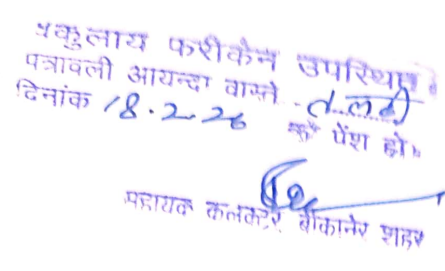 वकुलाय फरीकेन उपस्थित।
पत्रावली आयन्दा वास्ते तलबी
दिनांक 18.2.26 को पेंश हो।
सहायक कलक्टर बीकानेर शहर